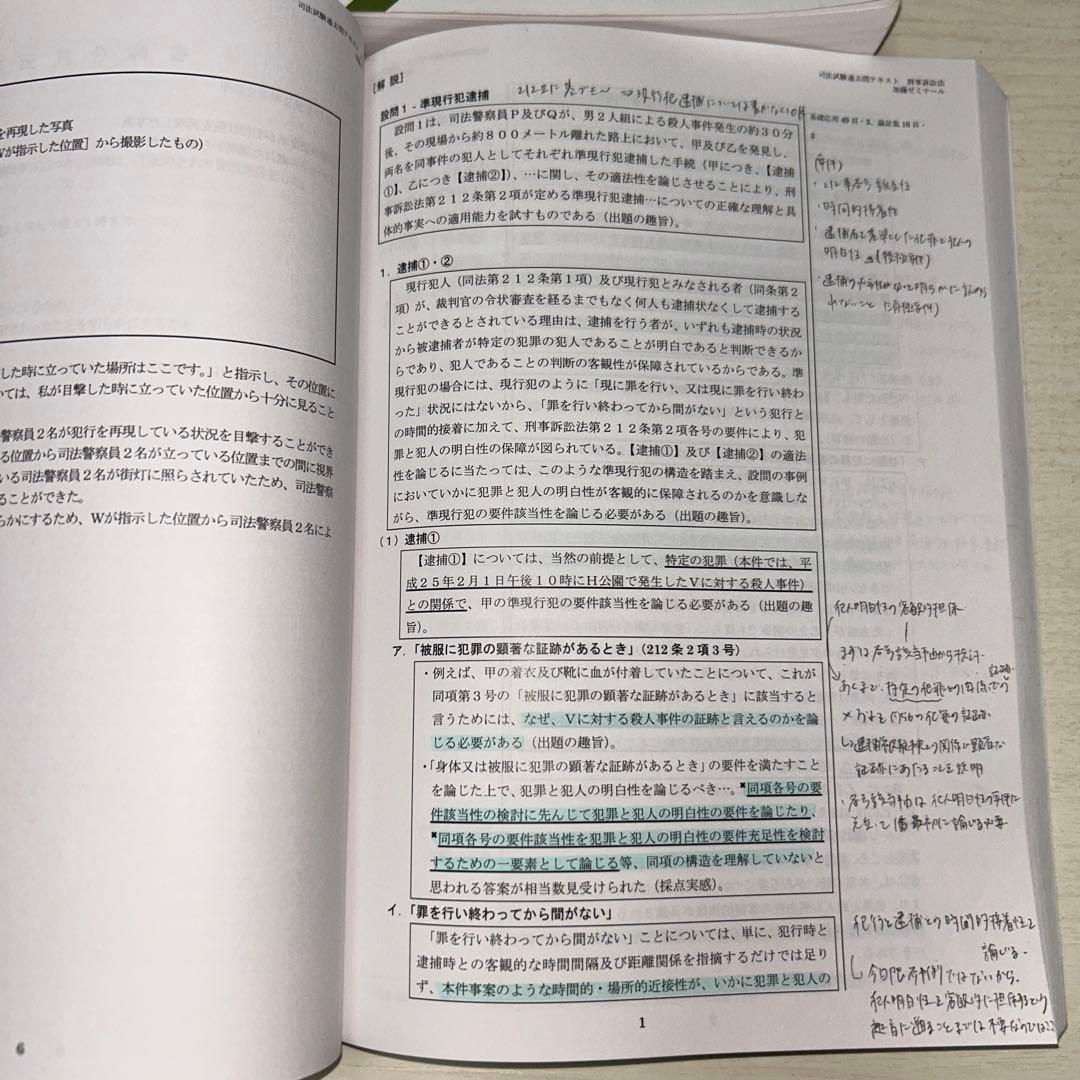 司法試験過去問テキスト
を再現した写真
Wが指示した位置］から撮影したもの)
した時に立っていた場所はここです。」と指示し、その位置に
いては、私が目撃した時に立っていた位置から十分に見ること
警察員２名が犯行を再現している状況を目撃することができ
る位置から司法警察員２名が立っている位置までの間に視界
いる司法警察員２名が街灯に照らされていたため、司法警察
ることができた。
らかにするため、Wが指示した位置から司法警察員２名によ
6
司法試験過去問テキスト　刑事訴訟法
加藤ゼミナール
［解 説］
設問１‐準現行犯逮捕
設問１は、司法警察員Ｐ及びＱが、男２人組による殺人事件発生の約３０分
後、その現場から約８００メートル離れた路上において、甲及び乙を発見し、
両名を同事件の犯人としてそれぞれ準現行犯逮捕した手続（甲につき、【逮捕
①】、乙につき【逮捕②】）、…に関し、その適法性を論じさせることにより、刑
事訴訟法第２１２条第２項が定める準現行犯逮捕…についての正確な理解と具
体的事実への適用能力を試すものである（出題の趣旨）。
基礎応用 49 頁・3、論証集 16 頁・
3
1．逮捕①・②
現行犯人（同法第２１２条第１項）及び現行犯とみなされる者（同条第２
項）が、裁判官の令状審査を経るまでもなく何人も逮捕状なくして逮捕する
ことができるとされている理由は、逮捕を行う者が、いずれも逮捕時の状況
から被逮捕者が特定の犯罪の犯人であることが明白であると判断できるか
らであり、犯人であることの判断の客観性が保障されているからである。準
現行犯の場合には、現行犯のように「現に罪を行い、又は現に罪を行い終わ
った」状況にはないから、「罪を行い終わってから間がない」という犯行と
の時間的接着に加えて、刑事訴訟法第２１２条第２項各号の要件により、犯
罪と犯人の明白性の保障が図られている。【逮捕①】及び【逮捕②】の適法
性を論じるに当たっては、このような準現行犯の構造を踏まえ、設問の事例
においていかに犯罪と犯人の明白性が客観的に保障されるのかを意識しな
がら、準現行犯の要件該当性を論じる必要がある（出題の趣旨）。
(1) 逮捕①
【逮捕①】については、当然の前提として、特定の犯罪（本件では、平
成２５年２月１日午後１０時にＨ公園で発生したＶに対する殺人事件）
との関係で、甲の準現行犯の要件該当性を論じる必要がある（出題の趣
旨）。
ア．「被服に犯罪の顕著な証跡があるとき」（212 条 2 項 3 号）
・例えば、甲の着衣及び靴に血が付着していたことについて、これが
同項第３号の「被服に犯罪の顕著な証跡があるとき」に該当すると
言うためには、なぜ、Ｖに対する殺人事件の証跡と言えるのかを論
じる必要がある（出題の趣旨）。
・「身体又は被服に犯罪の顕著な証跡があるとき」の要件を満たすこと
を論じた上で、犯罪と犯人の明白性を論じるべき…。同項各号の要
件該当性の検討に先んじて犯罪と犯人の明白性の要件を論じたり、
同項各号の要件該当性を犯罪と犯人の明白性の要件充足性を検討
するための一要素として論じる等、同項の構造を理解していないと
思われる答案が相当数見受けられた（採点実感）。
イ．「罪を行い終わってから間がない」
「罪を行い終わってから間がない」ことについては、単に、犯行時と
逮捕時との客観的な時間間隔及び距離関係を指摘するだけでは足り
ず、本件事案のような時間的・場所的近接性が、いかに犯罪と犯人の
1
・時間的接着性
犯人明白性の客観的担保
犯行と逮捕との時間的接着性を
論じる。